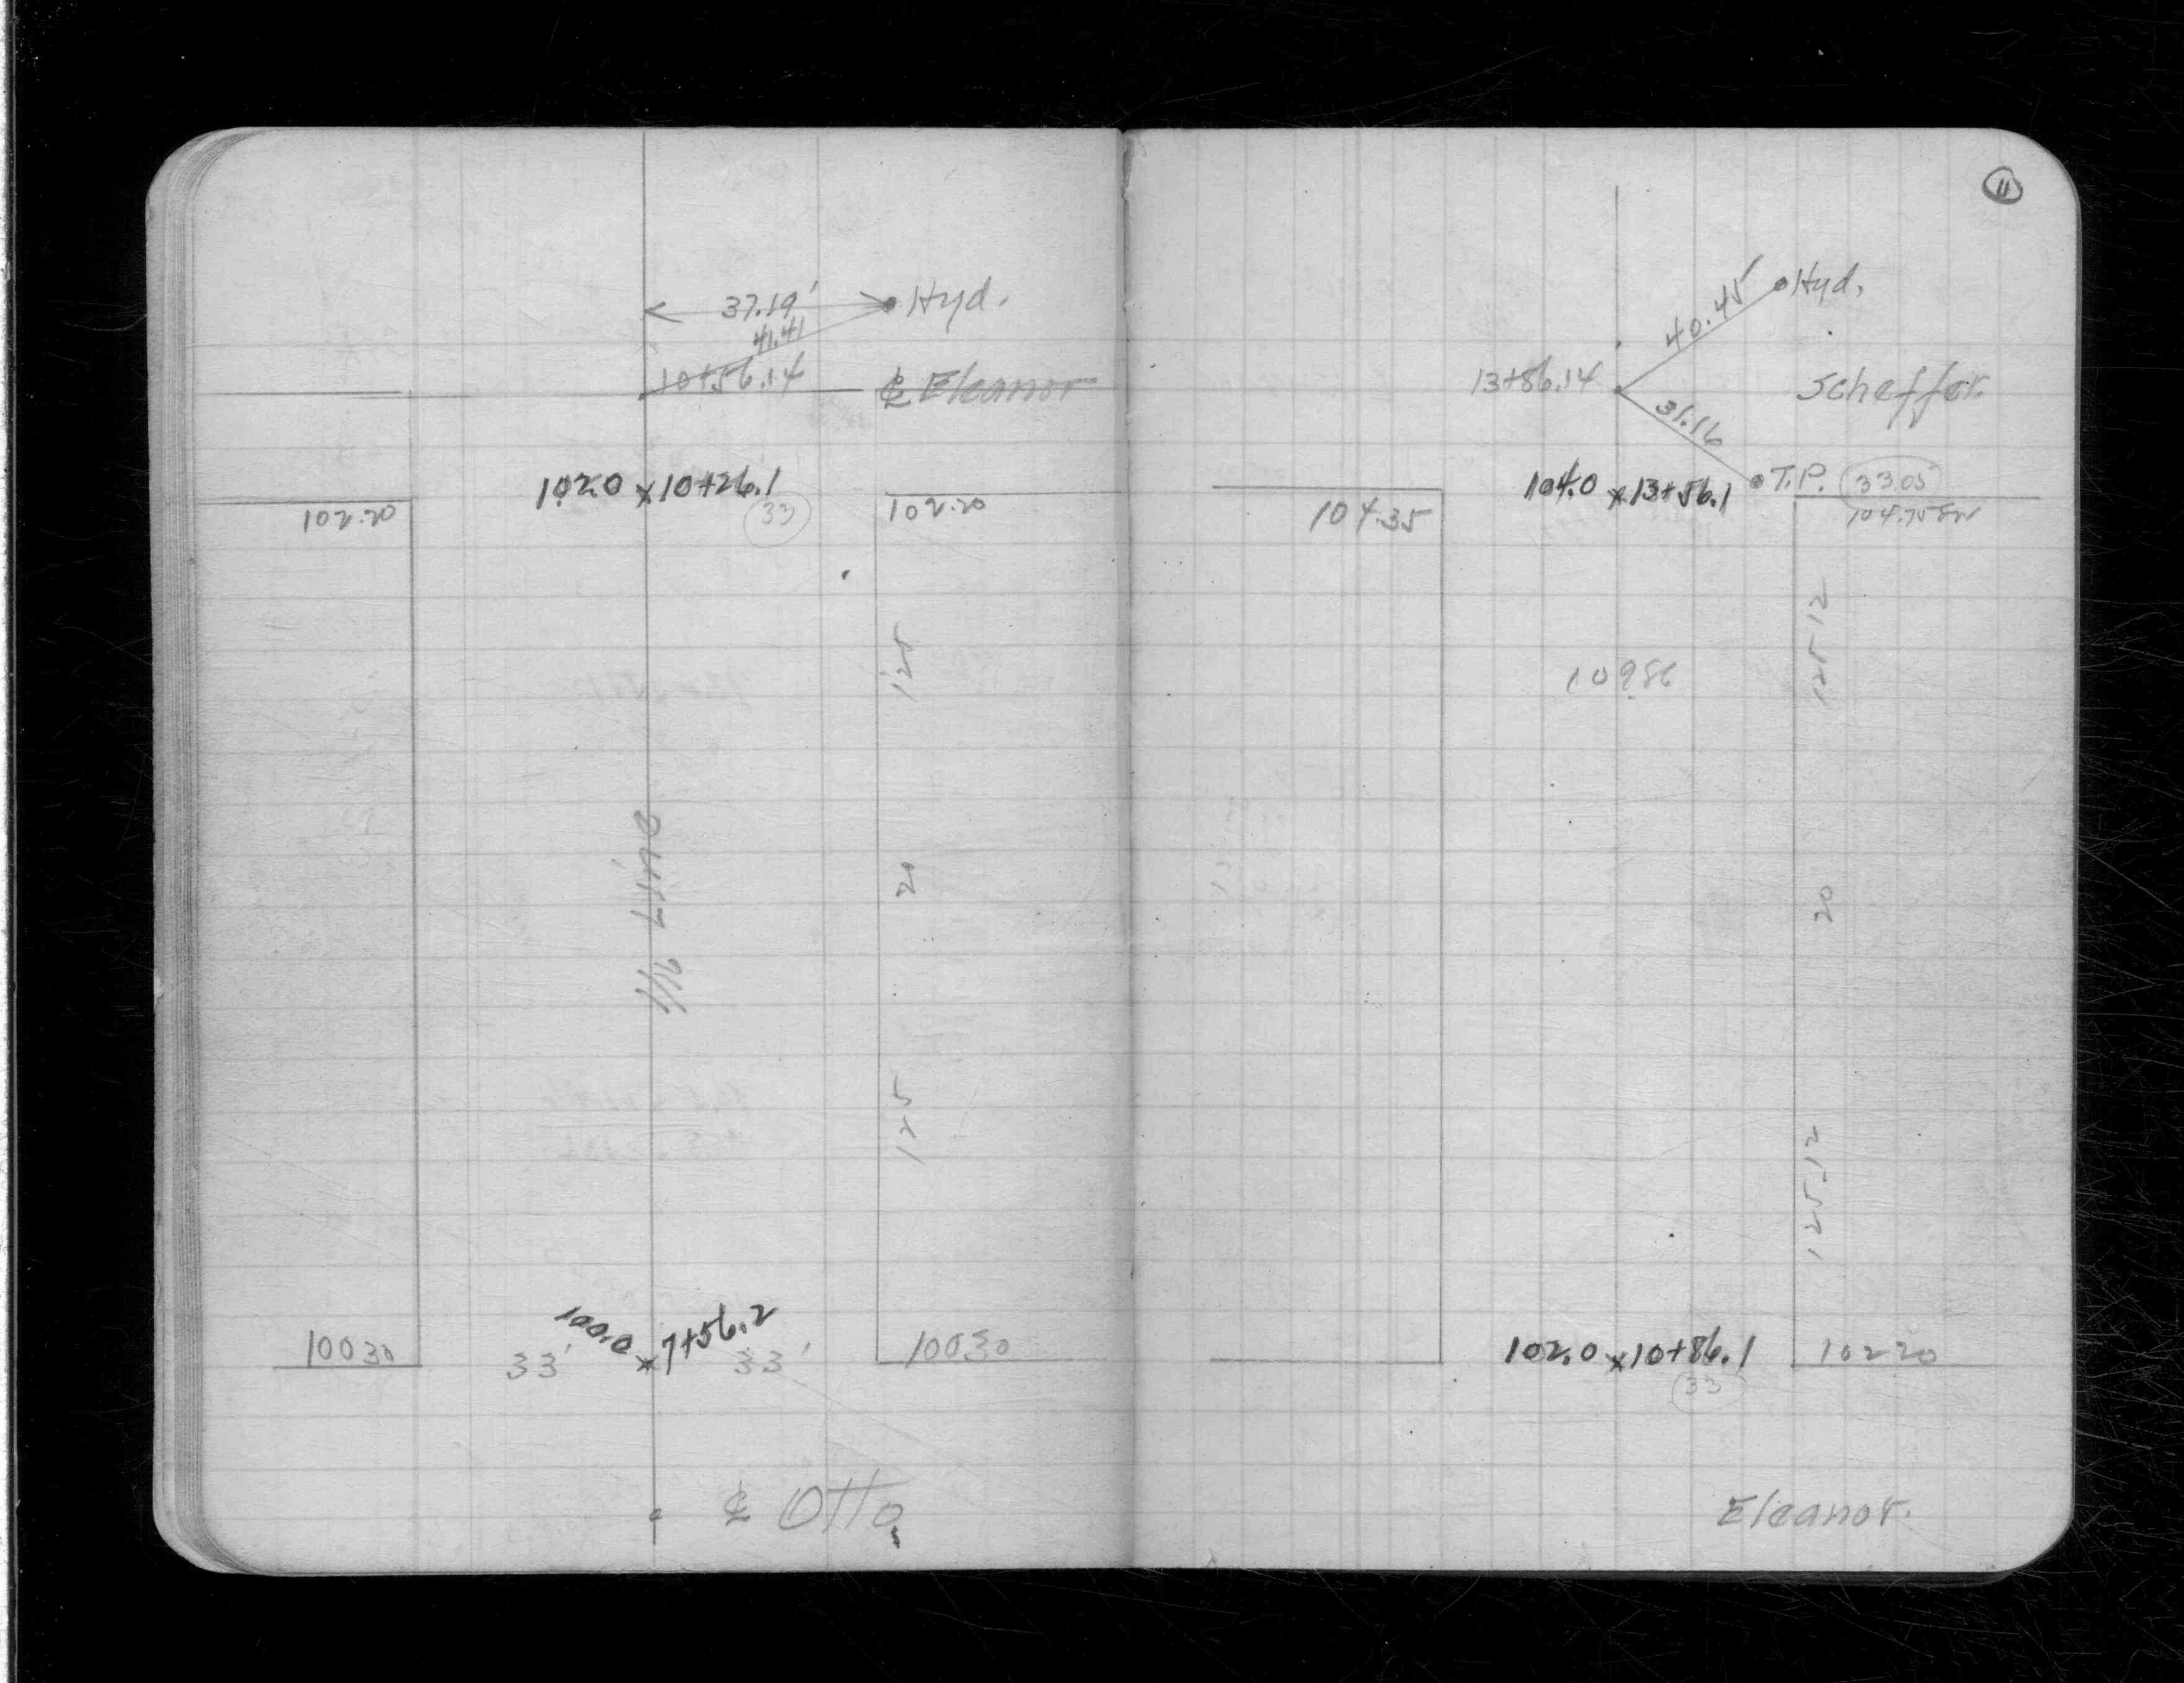 37.19'
Hyd.
41.41
10+56.14
℄ Eleanor
102.0 x 10+26.1
33
102.20
102.20
125
20
1/16 Line
125
100.30
33'
100.0 x 7+56.2
33'
100.30
℄ Otto
11
40.45
Hyd.
13+86.14
Scheffer.
31.16
104.0 x 13+56.1
T.P.
33.05
104.35
125.12
109.86
20
125.12
102.0 x 10+86.1
33
102.20
Eleanor.